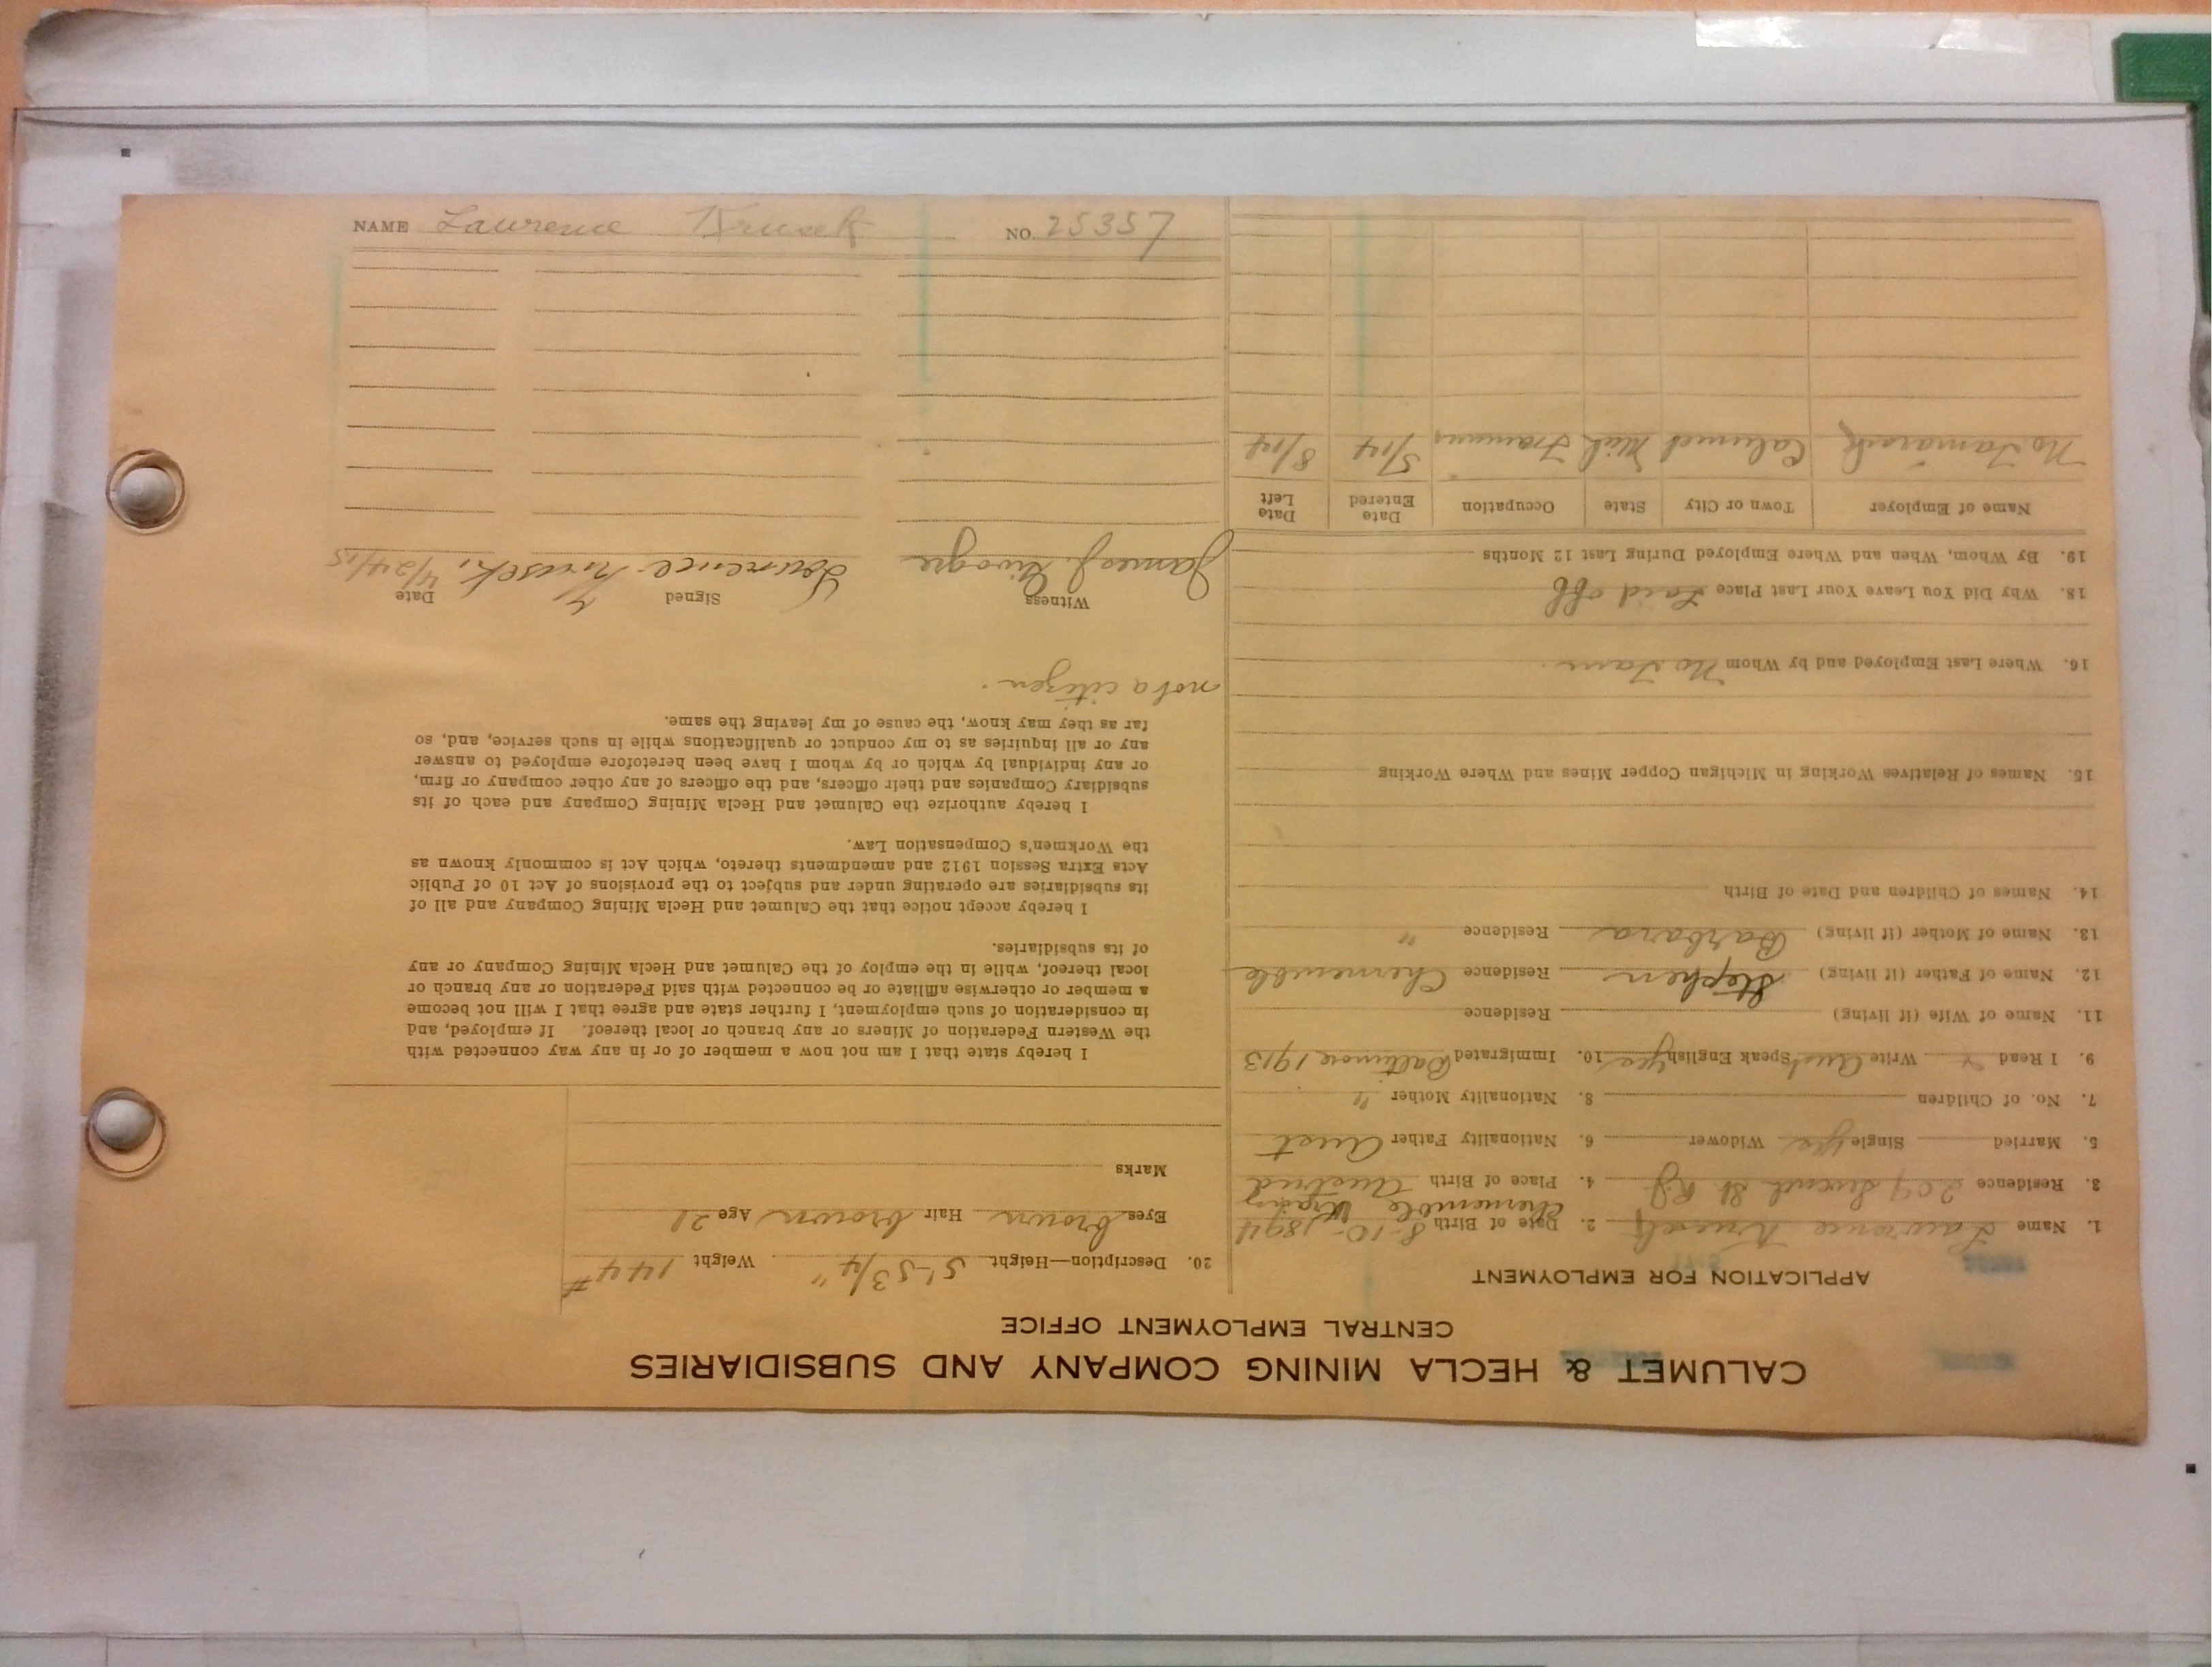 CALUMET & HECLA MINING COMPANY AND SUBSIDIARIES
CENTRAL EMPLOYMENT OFFICE
APPLICATION FOR EMPLOYMENT
1. Name Lawrence Krusek 2. Date of Birth 8-10-1894
3. Residence 209 Seventh St. 4. Place of Birth Austria
5. Married Single yes Widower 6. Nationality Father Aust
7. No. of Children 8. Nationality Mother "
9. I Read Write Aust Speak English yes 10. Immigrated Baltimore 1913
11. Name of Wife (if living) Residence
12. Name of Father (if living) Stephen Residence
13. Name of Mother (if living) Barbara Residence "
14. Names of Children and Date of Birth
15. Names of Relatives Working in Michigan Copper Mines and Where Working
16. Where Last Employed and by Whom No Tam
18. Why Did You Leave Your Last Place Laid off
19. By Whom, When and Where Employed During Last 12 Months
Name of Employer Town or City State Occupation Date Entered Date Left
No Tamarack Calumet Mich Trammer 5/14 8/14
20. Description—Height 5'-5 3/4" Weight 144#
Eyes brown Hair brown Age 21
Marks
I hereby state that I am not now a member of or in any way connected with
the Western Federation of Miners or any branch or local thereof. If employed, and
in consideration of such employment, I further state and agree that I will not become
a member or otherwise affiliate or be connected with said Federation or any branch or
local thereof, while in the employ of the Calumet and Hecla Mining Company or any
of its subsidiaries.
I hereby accept notice that the Calumet and Hecla Mining Company and all of
its subsidiaries are operating under and subject to the provisions of Act 10 of Public
Acts Extra Session 1912 and amendments thereto, which Act is commonly known as
the Workmen's Compensation Law.
I hereby authorize the Calumet and Hecla Mining Company and each of its
subsidiary Companies and their officers, and the officers of any other company or firm,
or any individual by which or by whom I have been heretofore employed to answer
any or all inquiries as to my conduct or qualifications while in such service, and, so
far as they may know, the cause of my leaving the same.
not a citizen.
Witness Signed Date
James J. Lawrence Krusek. 4/24/15
NAME Lawrence Krusek NO. 25357